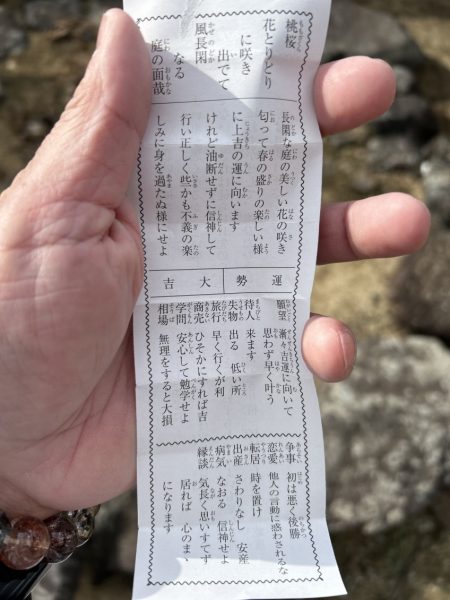 桃桜
花とりどり
に咲き
出でて
風長閑
なる
庭の面哉
長閑な庭の美しい花の咲き
匂って春の盛りの楽しい様
に上吉の運に向います
けれど油断せずに信神して
行い正しく些かも不義の楽
しみに身を過たぬ様にせよ
運勢
大吉
願望 漸々吉運に向いて
思わず早く叶う
待人 来ます
失物 出る 低い所
旅行 早く行くが利
商売 ひそかにすれば吉
学問 安心して勉学せよ
相場 無理をすると大損
争事 初は悪く後勝
恋愛 他人の言動に惑わされるな
転居 時を置け
出産 さわりなし 安産
病気 なおる 信神せよ
縁談 気長く思いすてず
居れば 心のまゝ
になります